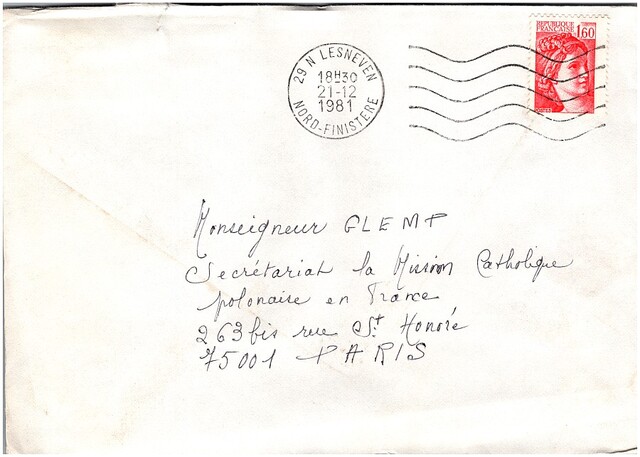 REPUBLIQUE
FRANÇAISE 1,60
29 N LESNEVEN
18H30
21-12
1981
NORD-FINISTERE
Monseigneur GLEMP
Secrétariat la Mission Catholique
polonaise en France
263 bis rue St Honoré
75001 PARIS